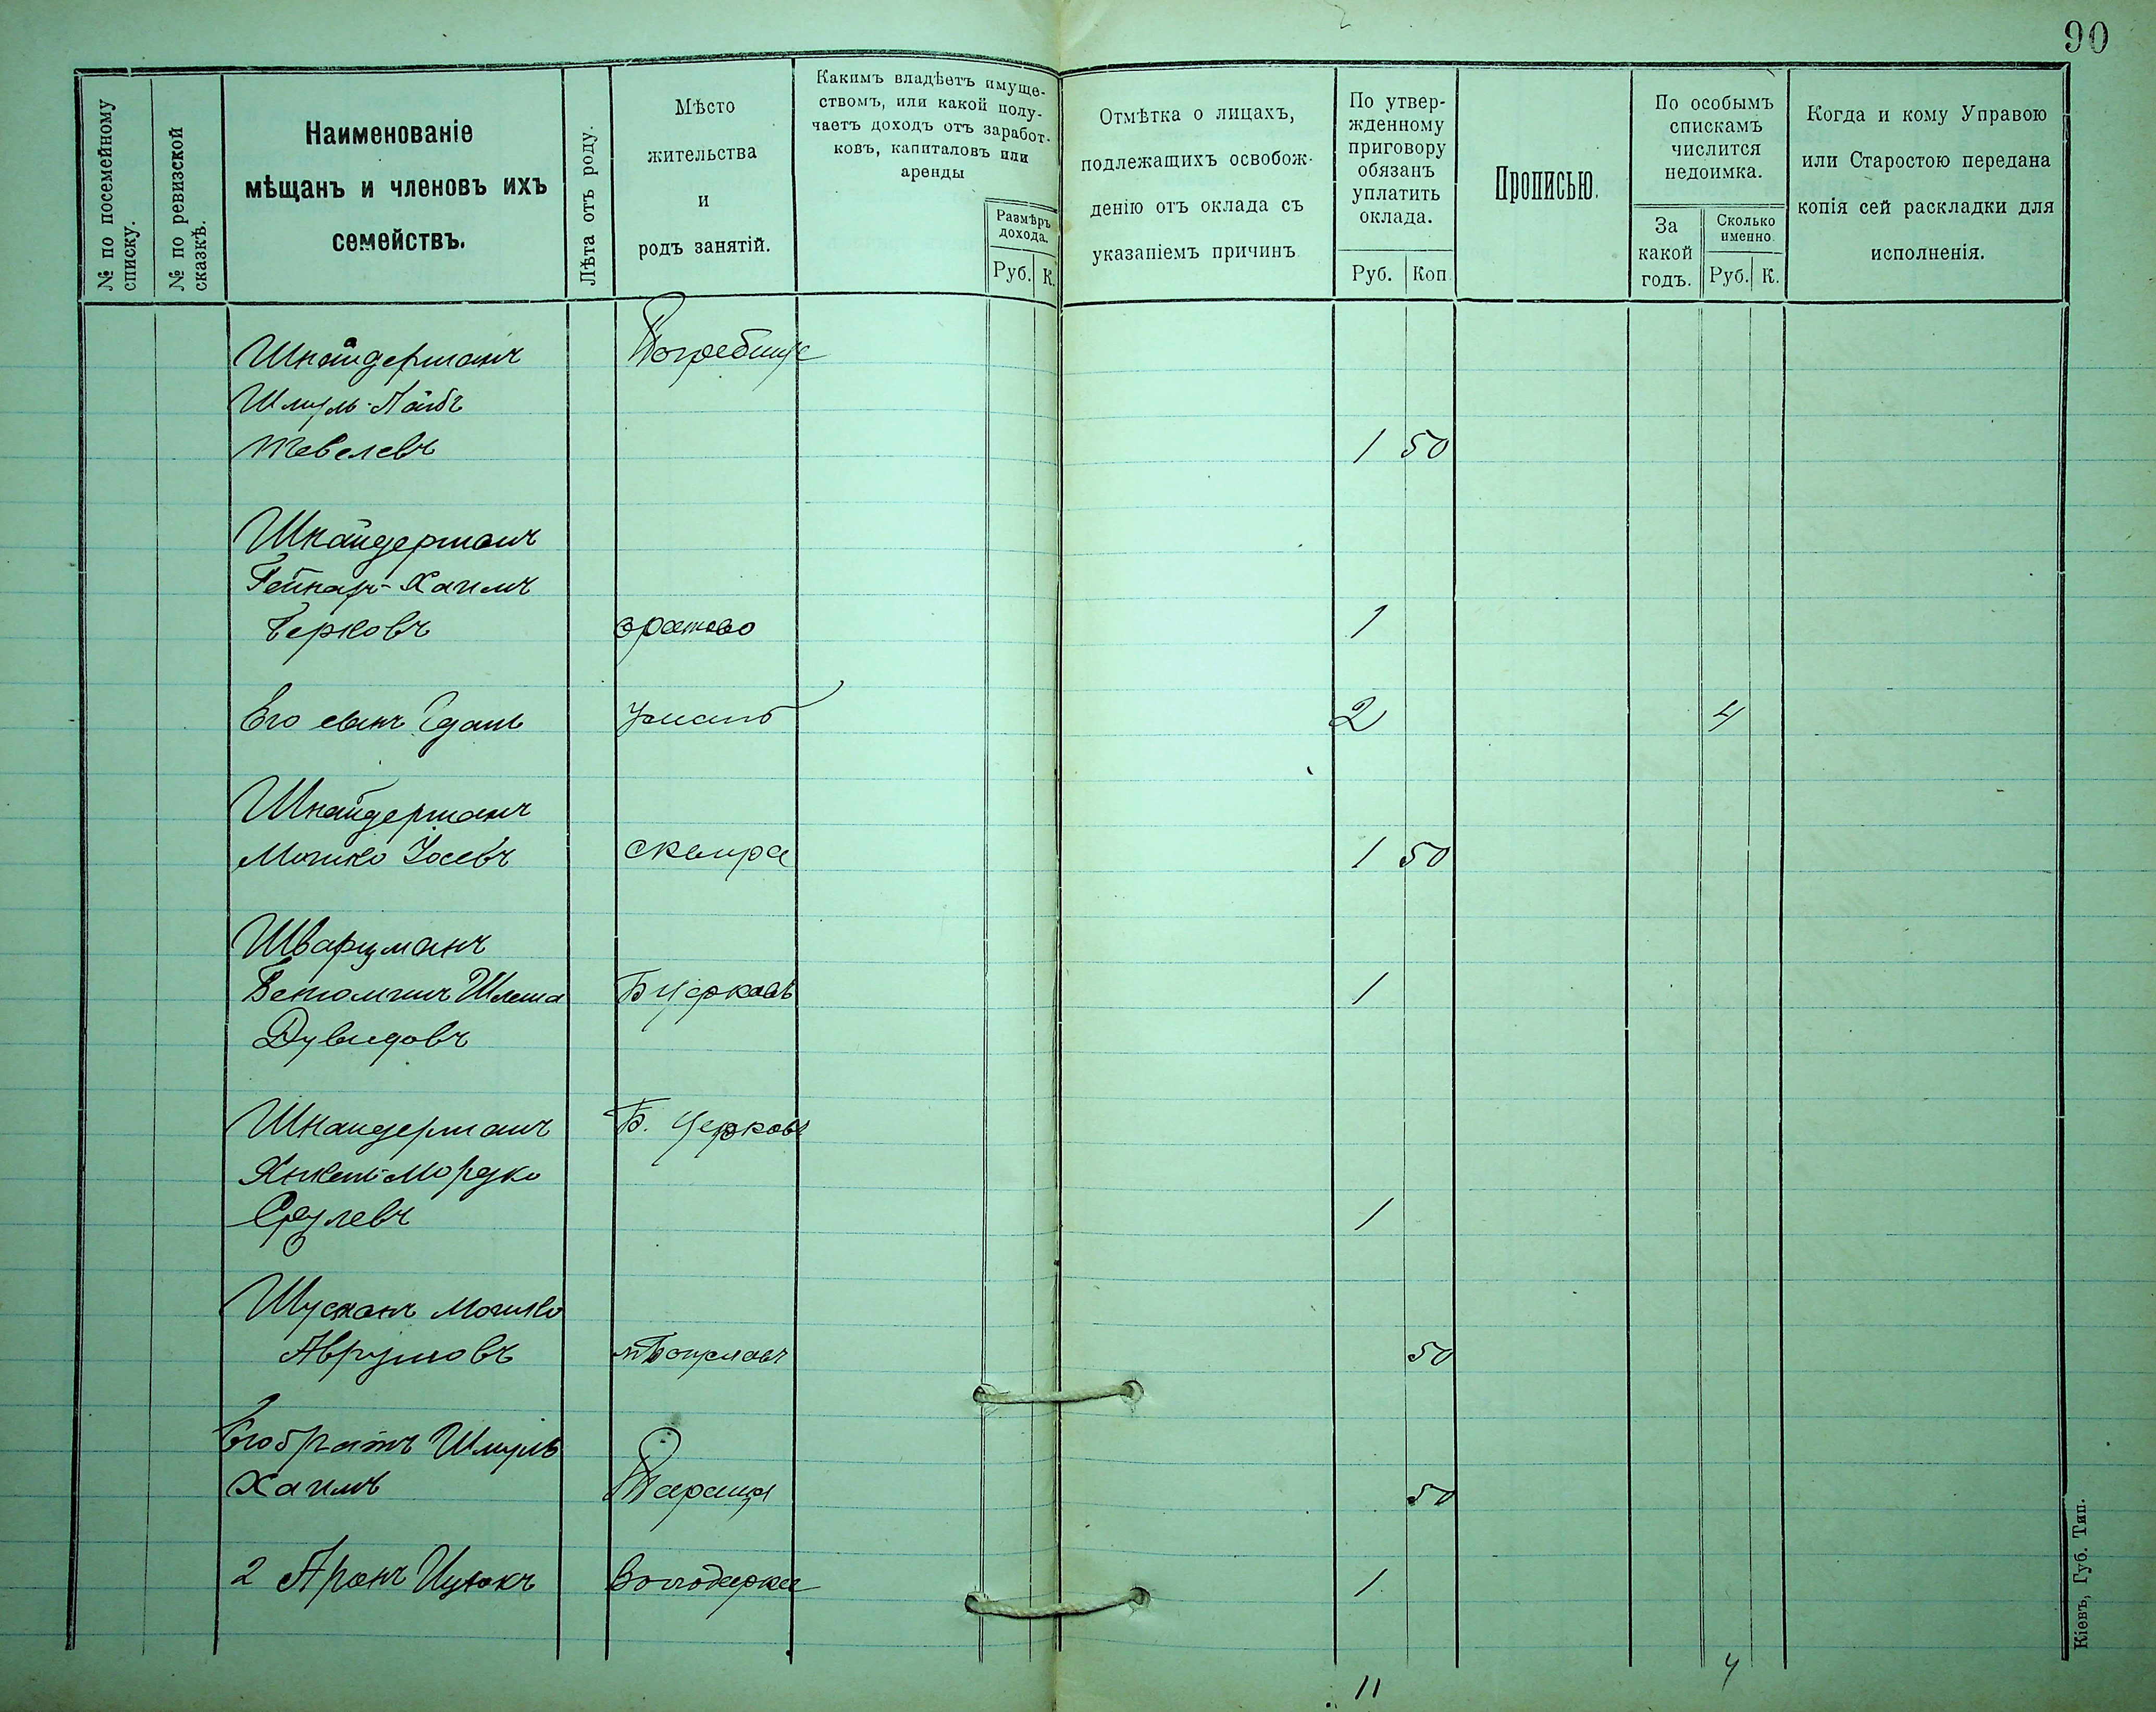 90
№ по посемейному
списку.
№ по ревизской
сказкѣ.
Наименованіе
мѣщанъ и членовъ ихъ
семействъ.
Лѣта отъ роду.
Мѣсто
жительства
и
родъ занятій.
Какимъ владѣетъ имуще-
ствомъ, или какой полу-
чаетъ доходъ отъ заработ-
ковъ, капиталовъ или
аренды
Размѣръ
дохода.
Руб. К.
Отмѣтка о лицахъ,
подлежащихъ освобож-
денію отъ оклада съ
указаніемъ причинъ
По утвер-
жденному
приговору
обязанъ
уплатить
оклада.
Руб. Коп
Прописью.
По особымъ
спискамъ
числится
недоимка.
За
какой
годъ.
Сколько
именно
Руб. К.
Когда и кому Управою
или Старостою передана
копія сей раскладки для
исполненія.
Шнайдерманъ Погребище
Шмуль-Лейбъ
Тевелевъ 1 50
Шнайдерманъ
Хаимъ
Берковъ 1
Его сынъ Умань 2 4
Шнайдерманъ
Мошко Іосевъ Сквира 1 50
Шварцманъ
Шлема Б Церковь 1
Дувидовъ
Шнайдерманъ Б. Церковь
Янкель Мордко
Срулевъ 1
Мошко
Аврумовъ м Богуславъ 50
Его братъ Шмуль
Хаимъ Тараща 50
2 Аронъ Ицхокъ Володарка 1
11 4
Кіевъ, Губ. Тип.